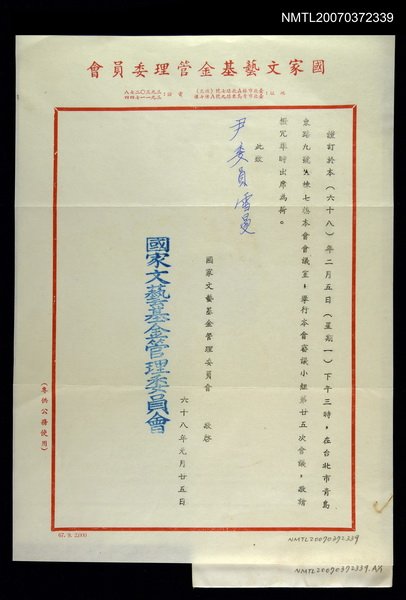 NMTL20070372339
國家文藝基金管理委員會
地址：
電話：
謹訂於本（六十八）年二月五日（星期一）下午三時，在台北市青島
東路九號八棟七樓本會會議室，舉行本會審議小組第廿五次會議，敬請
撥冗準時出席為荷。
此致
尹委員雪曼
國家文藝基金管理委員會　敬啓
六十八年元月廿五日
國家文藝基金管理委員會
（專供公務使用）
67. 9. 2,000
NMTL20070372339
NMTL20070372339.AX